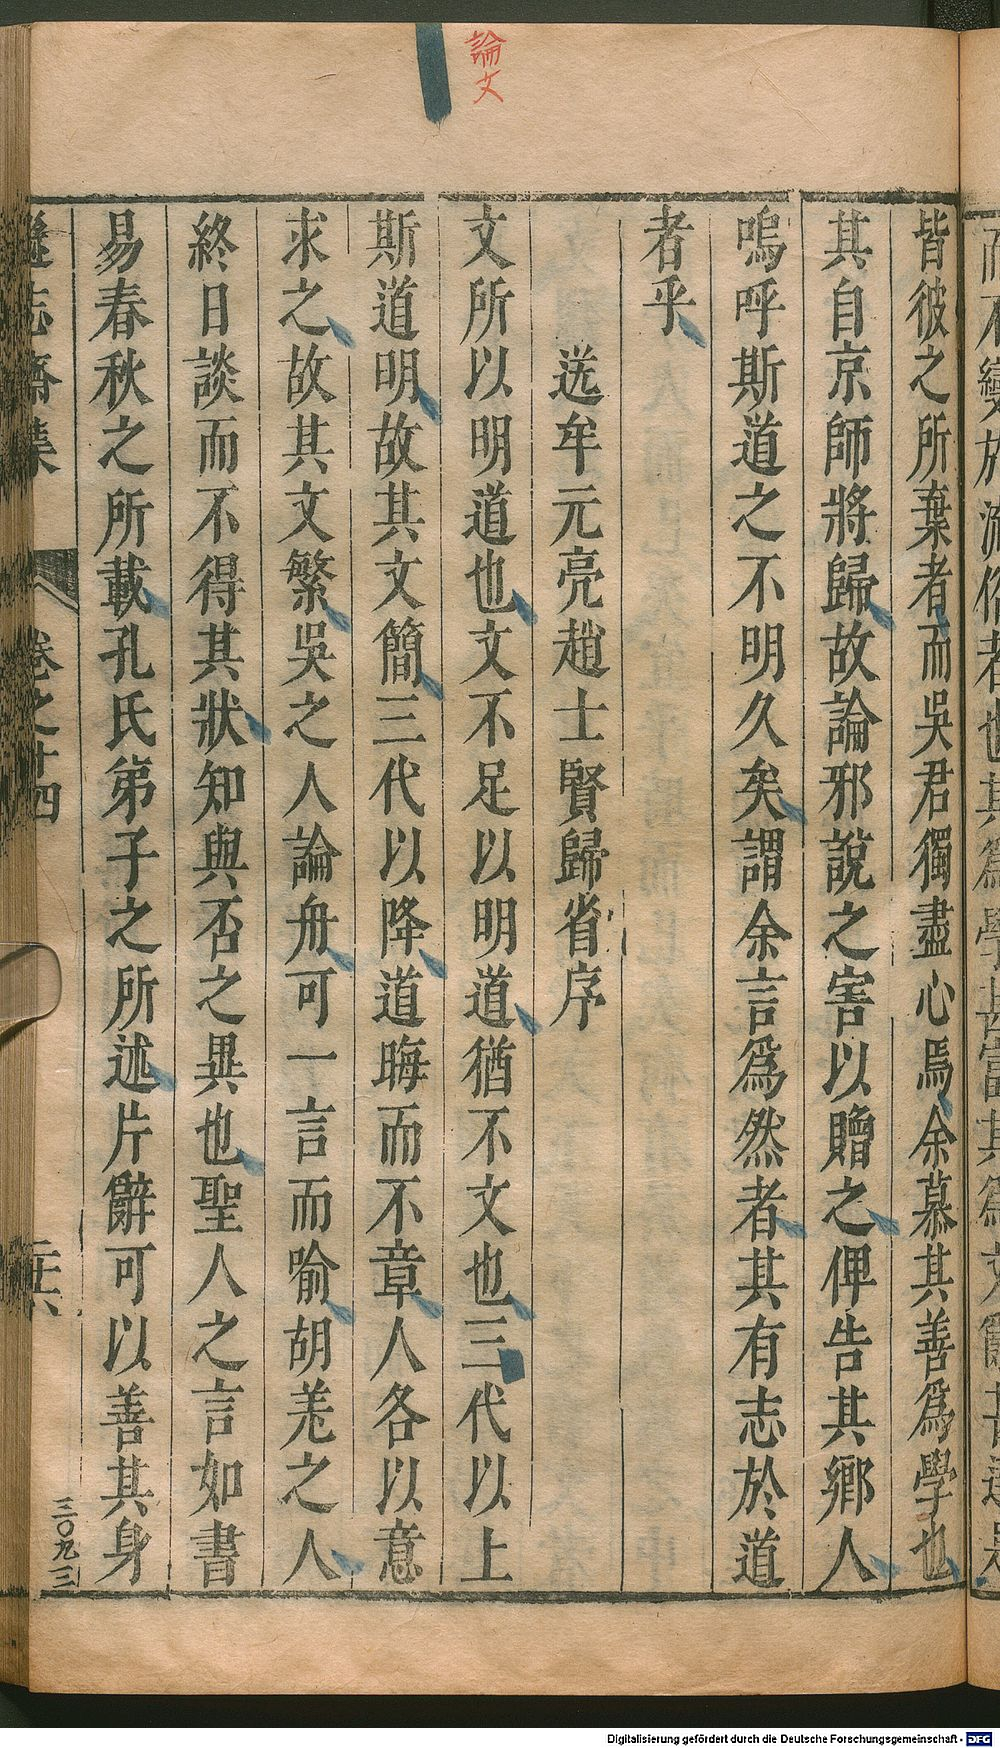 論文
皆彼之所棄者而吳君獨盡心焉余慕其善爲學也
其自京師將歸故論邪說之害以贈之俾告其鄉人
嗚呼斯道之不明久矣謂余言爲然者其有志於道
者乎
送牟元亮趙士賢歸省序
文所以明道也文不足以明道猶不文也三代以上
斯道明故其文簡三代以降道晦而不章人各以意
求之故其文繁吳之人論舟可一言而喻胡羌之人
終日談而不得其狀知與否之異也聖人之言如書
易春秋之所載孔氏弟子之所述片辭可以善其身
遜志齋集
卷之十四
三〇九三
Digitalisierung gefördert durch die Deutsche Forschungsgemeinschaft - DFG